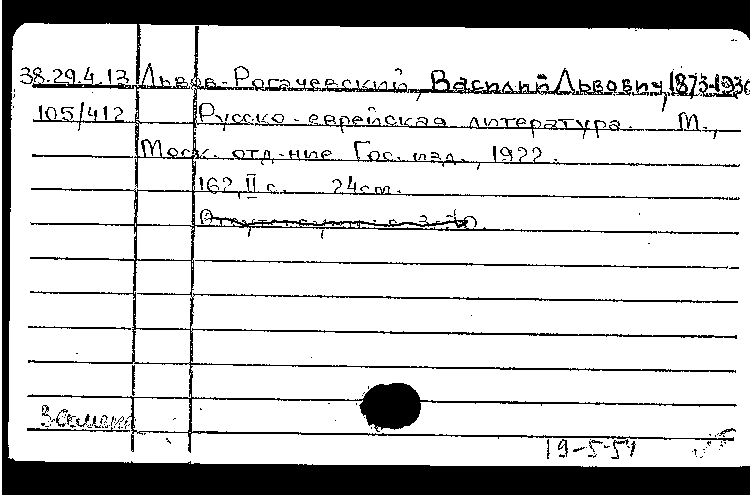 38.29.4.13 Львов-Рогачевский, Василий Львович, 1873-1930
105/412 Русско-еврейская литература. М.,
Моск. отд-ние Гос. изд., 1922.
162, II с. 24 cm.
Замена
19-5-54